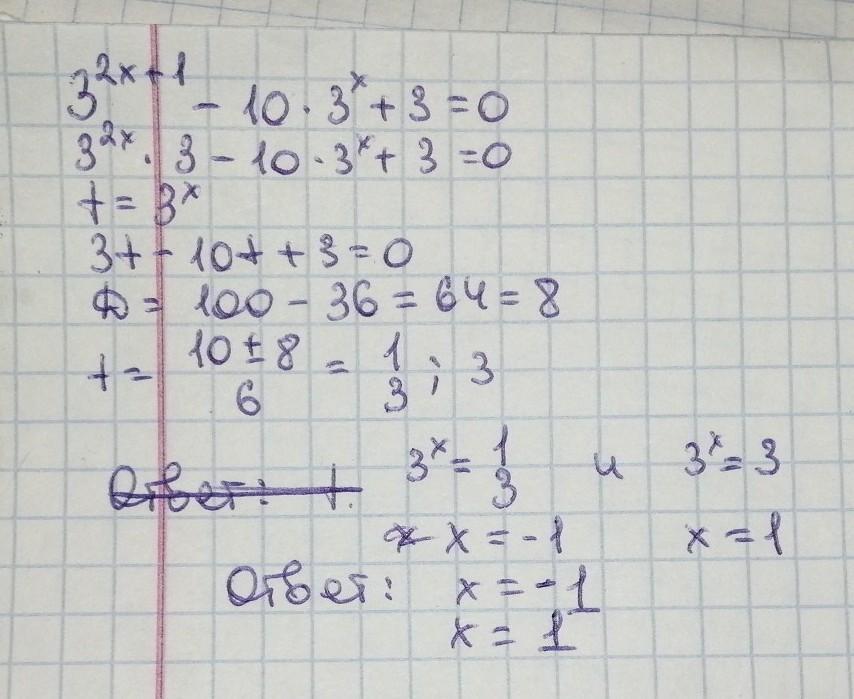 3^{2x+1} - 10 · 3^x + 3 = 0
3^{2x} · 3 - 10 · 3^x + 3 = 0
t = 3^x
3t - 10t + 3 = 0
D = 100 - 36 = 64 = 8
t = \frac{10 ± 8}{6} = \frac{1}{3} ; 3
3^x = \frac{1}{3} и 3^x = 3
Ответ: t.
x x = -1 x = 1
Ответ: x = -1
x = 1